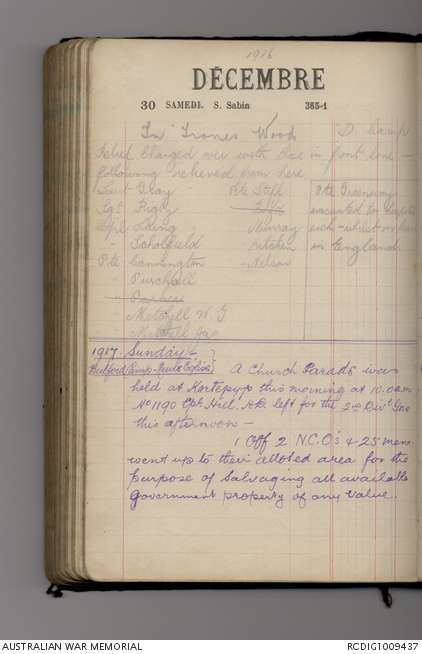 1916
DÉCEMBRE
30 SAMEDI. S. Sabin 365-1
In Trones Wood "D" Camp
changed over with in front line -
following relieved from here
Lieut Gray - Pte
Sgt Rigby
Cpl Laing - Murray
" Scholfield - Aitken
Pte Cannington - Nelson
" Purchell
" Mitchell W. G
" Mitchell Jas
Pte Greenway
evacuated to
sick whilst on
in England
1917. Sunday
A Church Parade was
held at Kortepyp this morning at 10.0am
No 1190 Cpl Hill. left for the 2nd Div
this afternoon -
1 Off 2 N.C.O's & 25 men
went up to their alloted area for the
purpose of Salvaging all available
Government property of any value.
AUSTRALIAN WAR MEMORIAL
RCDIG1009437